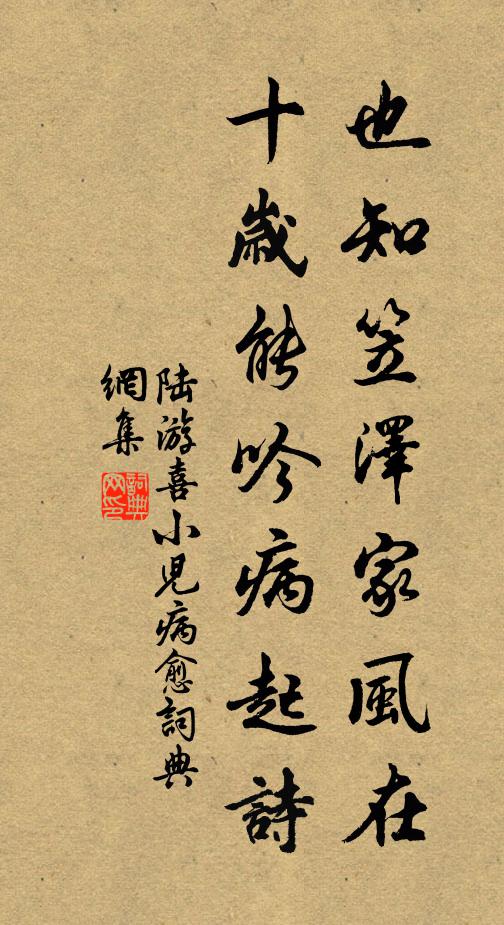 也知笠澤家風在
十歲能吟病起詩
陸游喜小兒病愈詞典
網集
詞典
网印